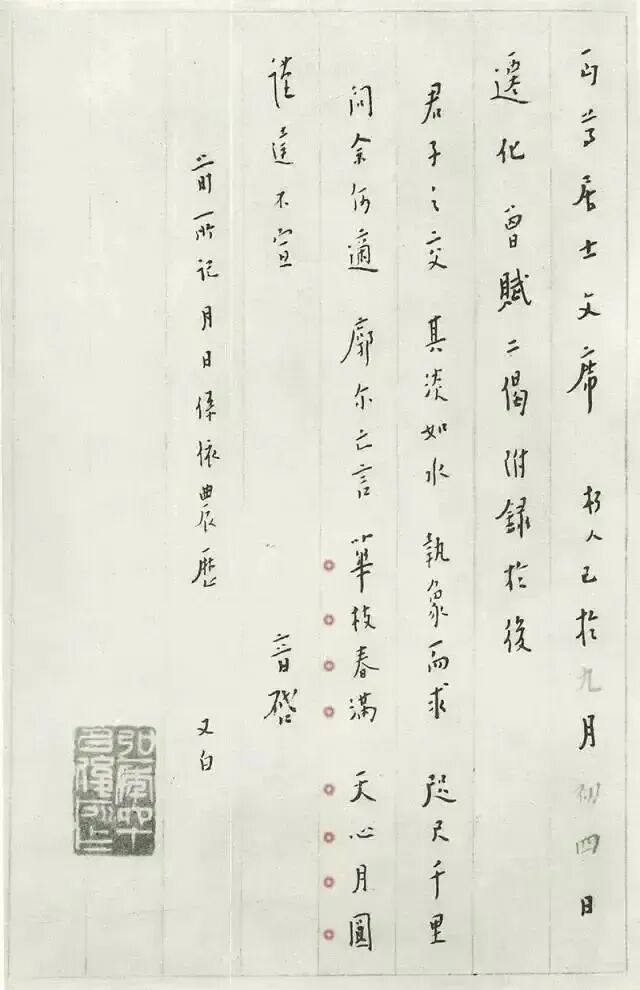 丏尊居士文席 朽人已於九月初四日
遷化 曾賦二偈附錄於後
君子之交 其淡如水 執象而求 咫尺千里
問余何適 廓尔亡言 華枝春滿 天心月圓
謹達不宣 音啓
前所記月日係依農歷 又白